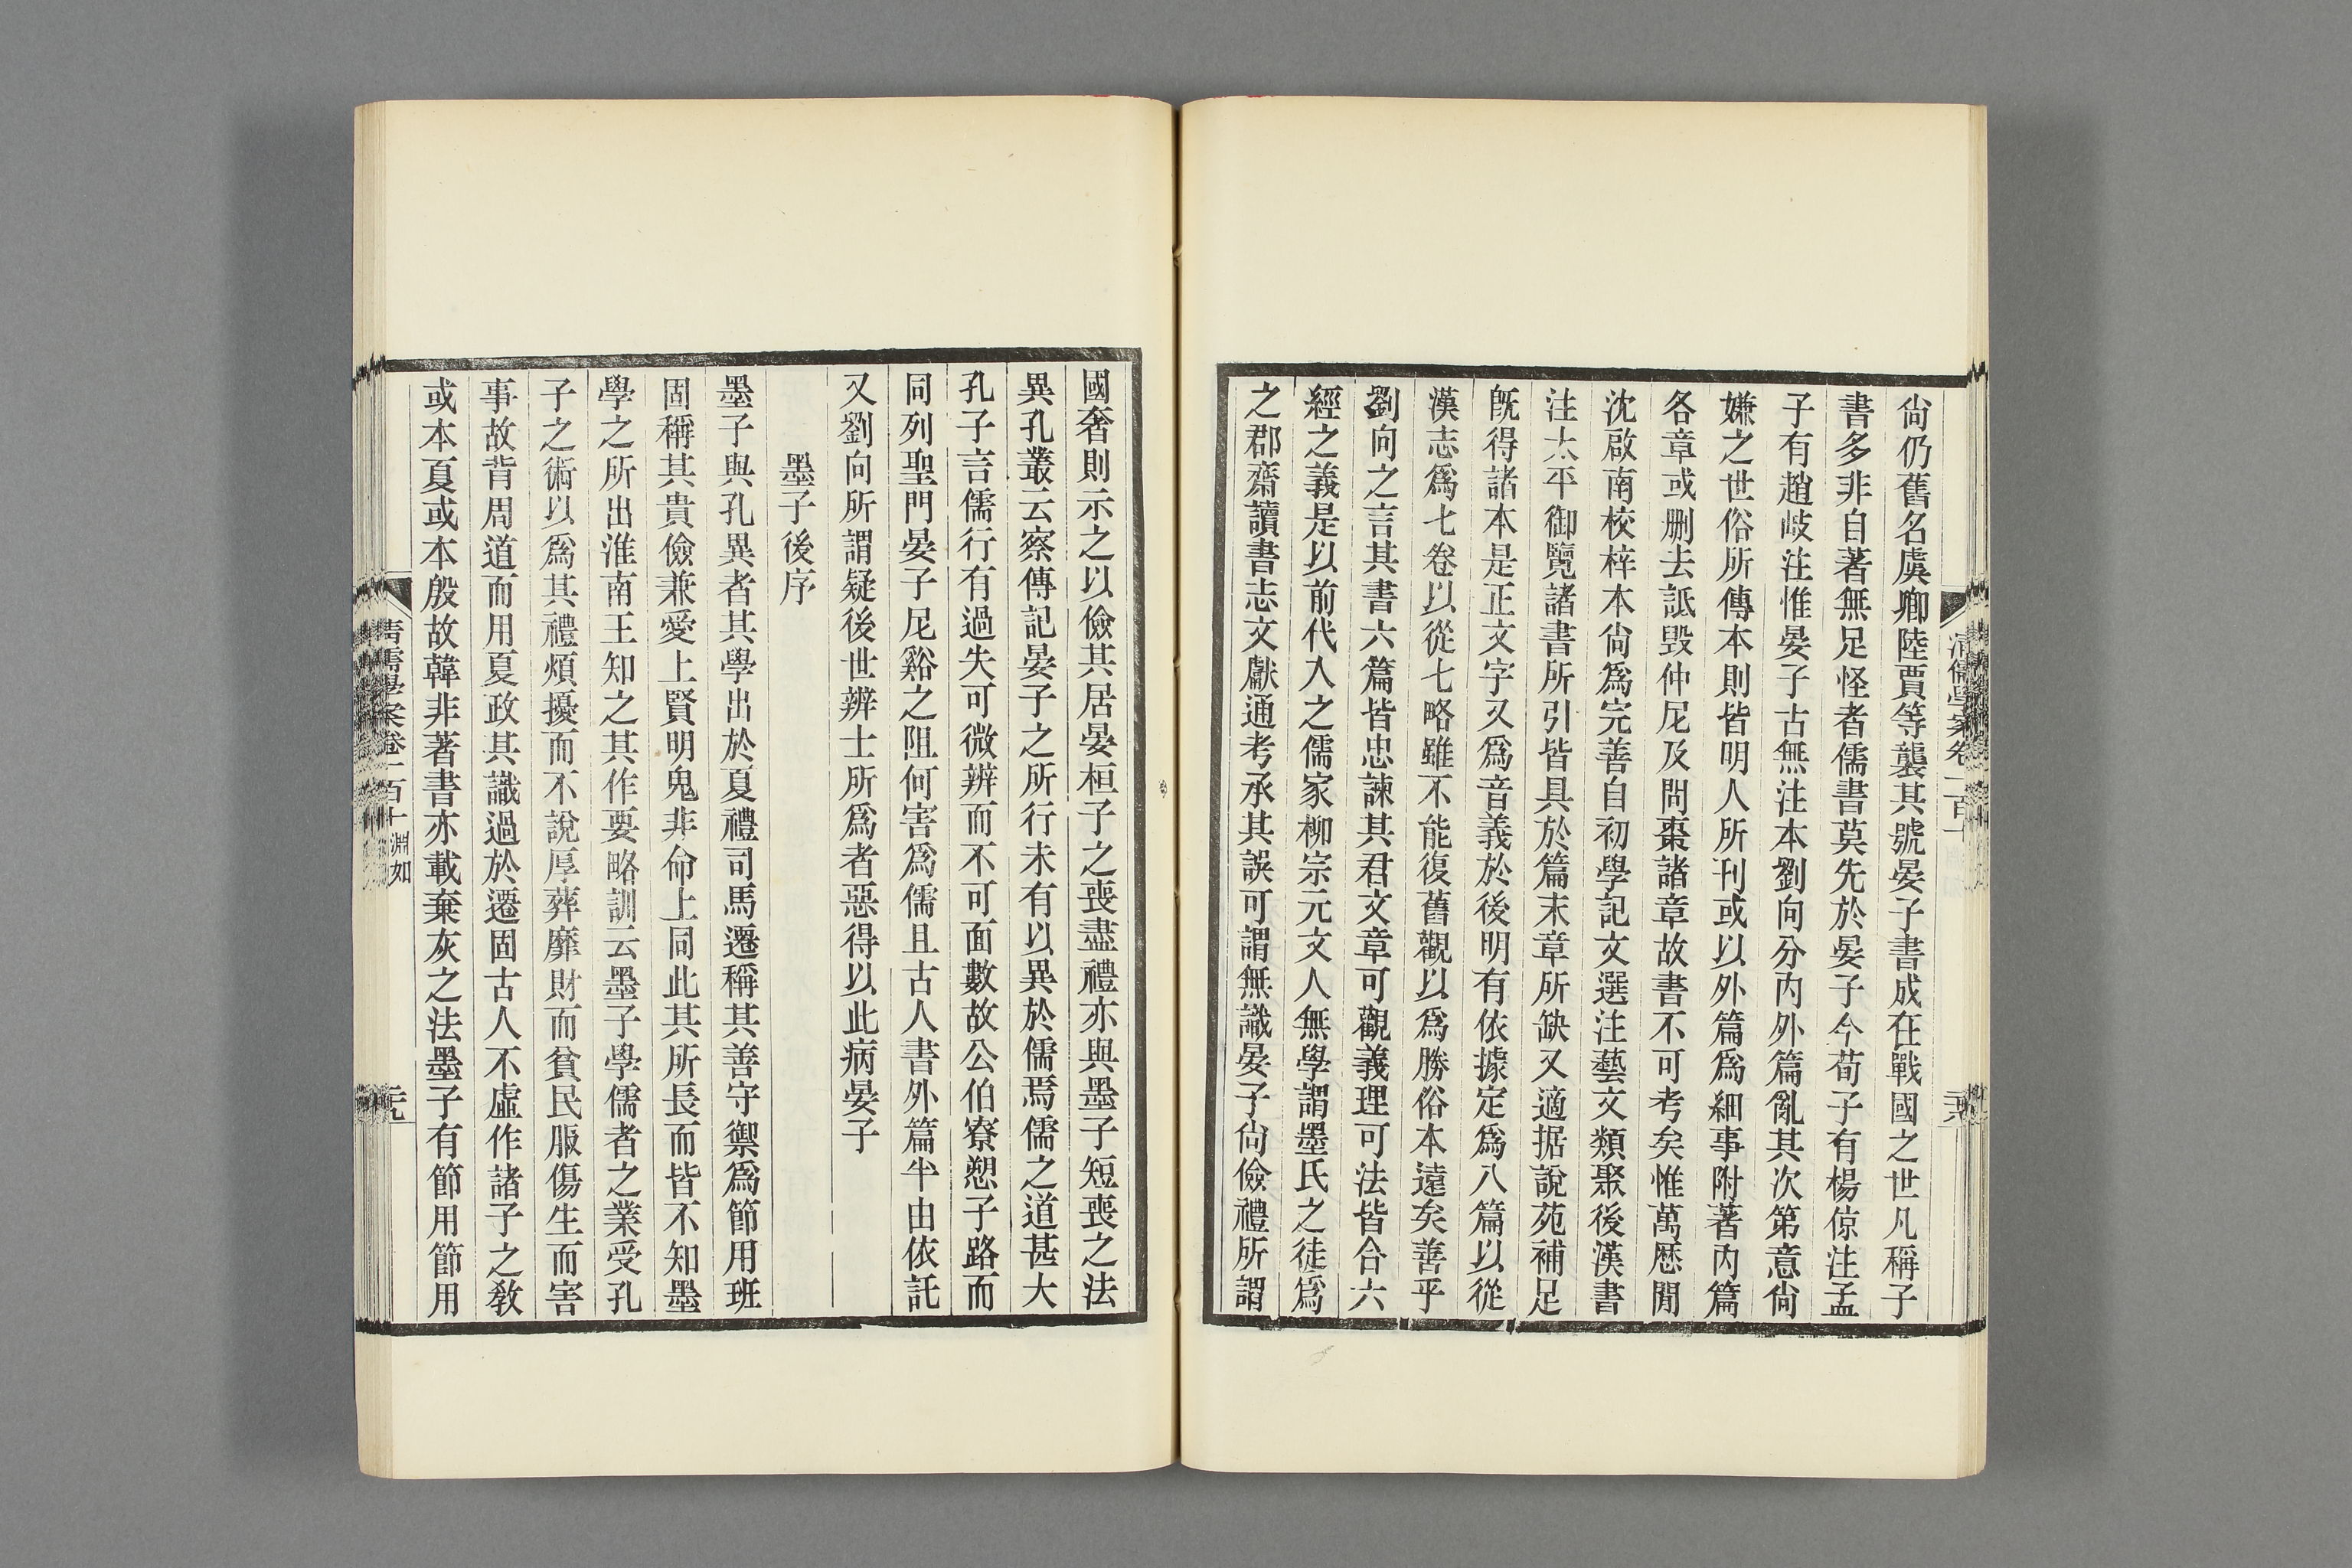 尙仍舊名虞卿陸賈等襲其號晏子書成在戰國之世凡稱子
書多非自著無足怪者儒書莫先於晏子今荀子有楊倞注孟
子有趙岐注惟晏子古無注本劉向分內外篇亂其次第意尙
嫌之世俗所傳本則皆明人所刊或以外篇爲細事附著內篇
各章或删去詆毀仲尼及問棗諸章故書不可考矣惟萬厯閒
沈啟南校梓本尙爲完善自初學記文選注藝文類聚後漢書
注太平御覽諸書所引皆具於篇末章所缺又適据說苑補足
旣得諸本是正文字又爲音義於後明有依據定爲八篇以從
漢志爲七卷以從七略雖不能復舊觀以爲勝俗本遠矣善乎
劉向之言其書六篇皆忠諫其君文章可觀義理可法皆合六
經之義是以前代入之儒家柳宗元文人無學謂墨氏之徒爲
之郡齋讀書志文獻通考承其誤可謂無識晏子尙儉禮所謂
清儒學案卷一百十
國奢則示之以儉其居晏桓子之喪盡禮亦與墨子短喪之法
異孔叢云察傳記晏子之所行未有以異於儒焉儒之道甚大
孔子言儒行有過失可微辨而不可面數故公伯寮愬子路而
同列聖門晏子尼谿之阻何害爲儒且古人書外篇半由依託
又劉向所謂疑後世辨士所爲者惡得以此病晏子
墨子後序
墨子與孔異者其學出於夏禮司馬遷稱其善守禦爲節用班
固稱其貴儉兼愛上賢明鬼非命上同此其所長而皆不知墨
學之所出淮南王知之其作要略訓云墨子學儒者之業受孔
子之術以爲其禮煩擾而不說厚葬靡財而貧民服傷生而害
事故背周道而用夏政其識過於遷固古人不虛作諸子之敎
或本夏或本殷故韓非著書亦載棄灰之法墨子有節用節用
清儒學案卷一百十 淵如